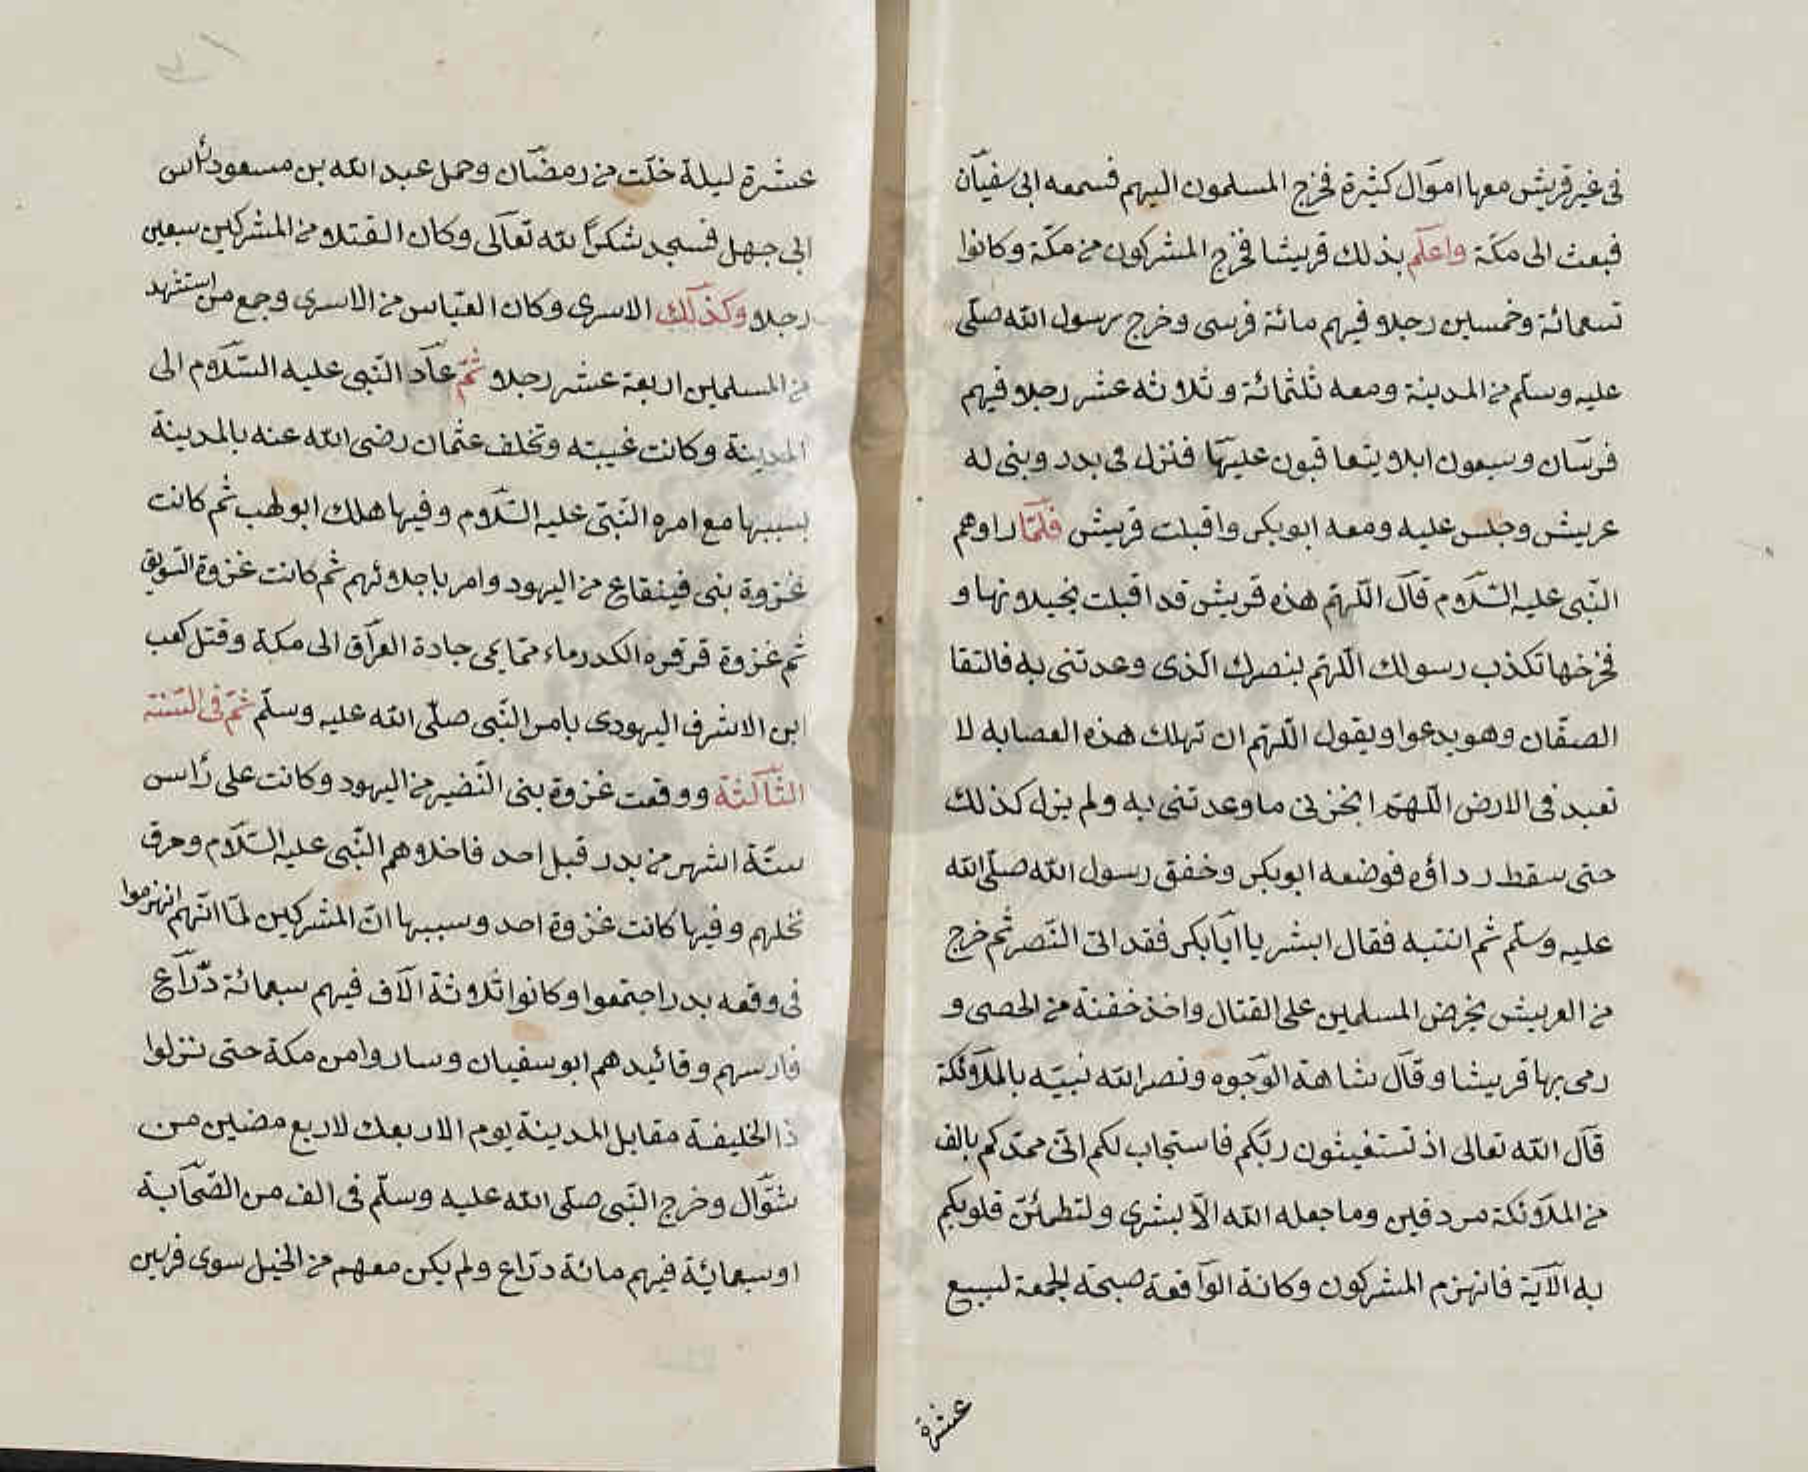 فى غير قريش معها اموال كثيرة فخرج المسلمون اليهم فسمعه ابى سفيان
فبعث الى مكة واعلم بذلك قريشا فخرج المشركون من مكة وكانوا
تسعمائة وخمسين رجلا وفيهم مائة فرسى وخرج رسول الله صلّى
عليه وسلّم من المدينة ومعه ثلثمائة وثلاثه عشر رجلا وفيهم
فرسان وسبعون ابلا ويتعاقبون عليها فنزل فى بدر وبنى له
عريش وجلس عليه ومعه ابو بكر واقبلت قريش فلمّا راوهم
النّبى عليه السّلام قال اللّهمّ هذه قريش قد اقبلت بخيلائها و
فخرخها تكذب رسولك اللّهمّ بنصرك الّذى وعدتنى به فالتقا
الصفّان وهو يدعوا ويقول اللّهمّ ان تهلك هذه العصابه لا
تعبد فى الارض اللّهمّ انجزنى ما وعدتنى به ولم يزل كذلك
حتى سقط رداؤه فوضعه ابو بكر وخفق رسول الله صلّى الله
عليه وسلّم ثم انتبه فقال ابشر يا ابابكر فقد اتى النّصر ثم خرج
من العريش يحرض المسلمين على القتال واخذ خفنة من الحصى و
رمى بها قريشا وقال شاهة الوجوه ونصر الله نبيّه بالملائكة
قال الله تعالى اذ تستغيثون ربّكم فاستجاب لكم انّى ممدّكم بالف
من الملائكة مردفين وما جعله الله الّا بشرى ولتطمئنّ قلوبكم
به الآية فانهزم المشركون وكانة الواقعة صبحة الجمعة لسبع
عشرة
عشرة ليلة خلّت من رمضان وحمل عبد الله بن مسعود رأس
ابى جهل فسجد شكرًا لله تعالى وكان القتلا من المشركين سبعين
رجلا وكذلك الاسرى وكان العبّاس من الاسرى وجمع من استشهد
من المسلمين اربعة عشر رجلا ثمّ عاد النّبى عليه السّلام الى
المدينة وكانت غيبته وتخلف عثمان رضى الله عنه بالمدينة
بسببها مع امره النّبى عليه السّلام وفيها هلك ابو لهب ثم كانت
غزوة بنى قينقاع من اليهود وامر باجلائهم ثم كانت غزوة السّويق
ثم غزوة قرقره الكدر ماء ممّا يمى جادة العراق الى مكة وقتل كعب
ابن الاشرف اليهودى بامر النّبى صلّى الله عليه وسلّم ثمّ فى السّنة
الثّالثة ووقعت غزوة بنى النّضير من اليهود وكانت على رأس
ستّة اشهر من بدر قبل احد فاخلاوهم النّبى عليه السّلام وحرق
نخلهم وفيها كانت غزوة احد وسببها انّ المشركين لمّا انّهم انهزموا
فى وقعه بدر اجتمعوا وكانوا ثلاوثة آلاف فيهم سبعمائة درّاع
فارسهم وقائيدهم ابو سفيان وساروا من مكة حتى نزلوا
ذا الحليفة مقابل المدينة يوم الاربعك لاربع مضين من
شوّال وخرج النّبى صلّى الله عليه وسلّم فى الف من الصّحابة
او سبعمايئة فيهم مائة درّاع ولم يكن معهم من الخيل سوى فرسين